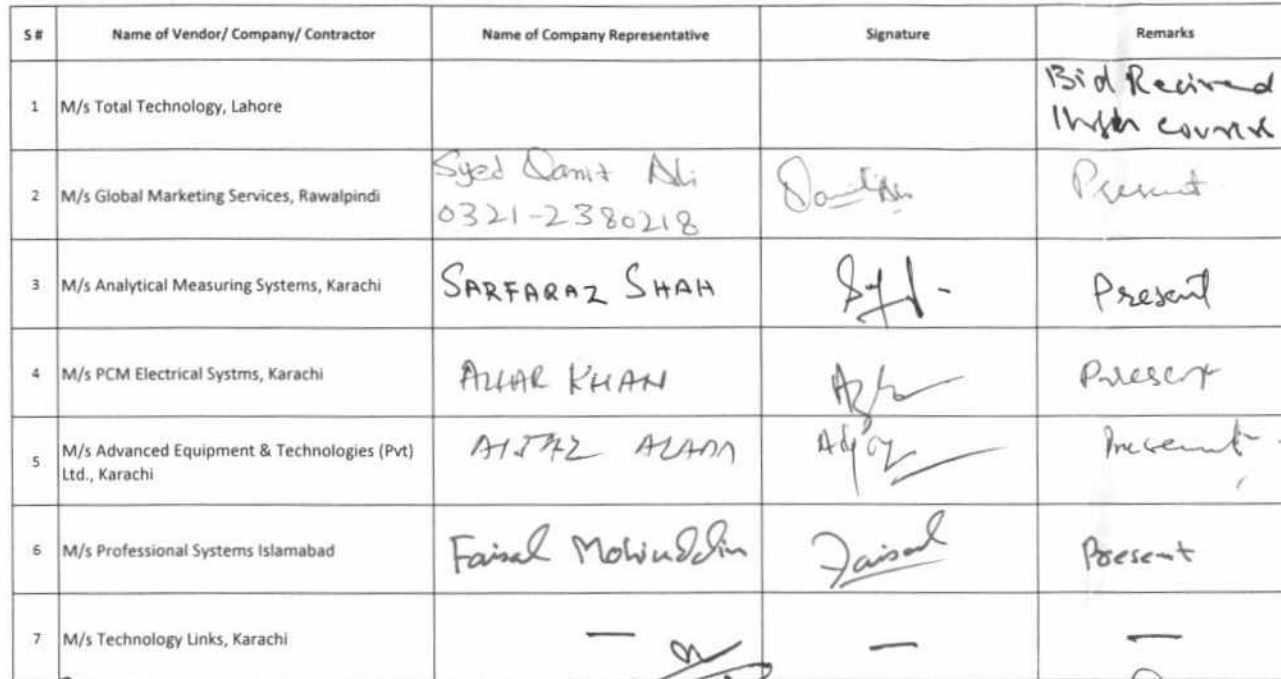 S # Name of Vendor/ Company/ Contractor Name of Company Representative Signature Remarks
1 M/s Total Technology, Lahore Bid Recived
2 M/s Global Marketing Services, Rawalpindi Syed Danit Ali Present
0321-2380218
3 M/s Analytical Measuring Systems, Karachi SARFARAZ SHAH Present
4 M/s PCM Electrical Systms, Karachi AZHAR KHAN Present
5 M/s Advanced Equipment & Technologies (Pvt) AIJAZ ALAM Present
Ltd., Karachi
6 M/s Professional Systems Islamabad Faisal Mohiuddin Faisal Present
7 M/s Technology Links, Karachi — — —